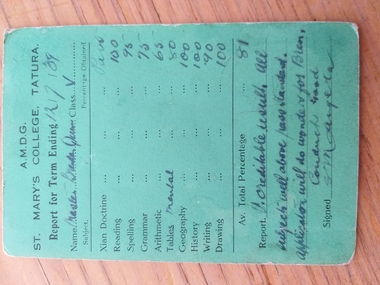 A.M.D.G.
ST. MARY'S COLLEGE, TATURA.
Report for Term Ending
Name, Master Class V
Subject. Percentage Obtained
Xian Doctrine ...
Reading ... ... 100
Spelling ... ... 95
Grammar ... ... 75
Arithmetic ... ... 65
Tables mental ... 80
Geography ... ... 100
History ... ... 100
Writing ... ... 90
Drawing ... ... 100
Av. Total Percentage ... 81
Report, A Creditable result, All
subjects well above pass standard.
Application will do wonders for Brien.
Conduct Good
Signed